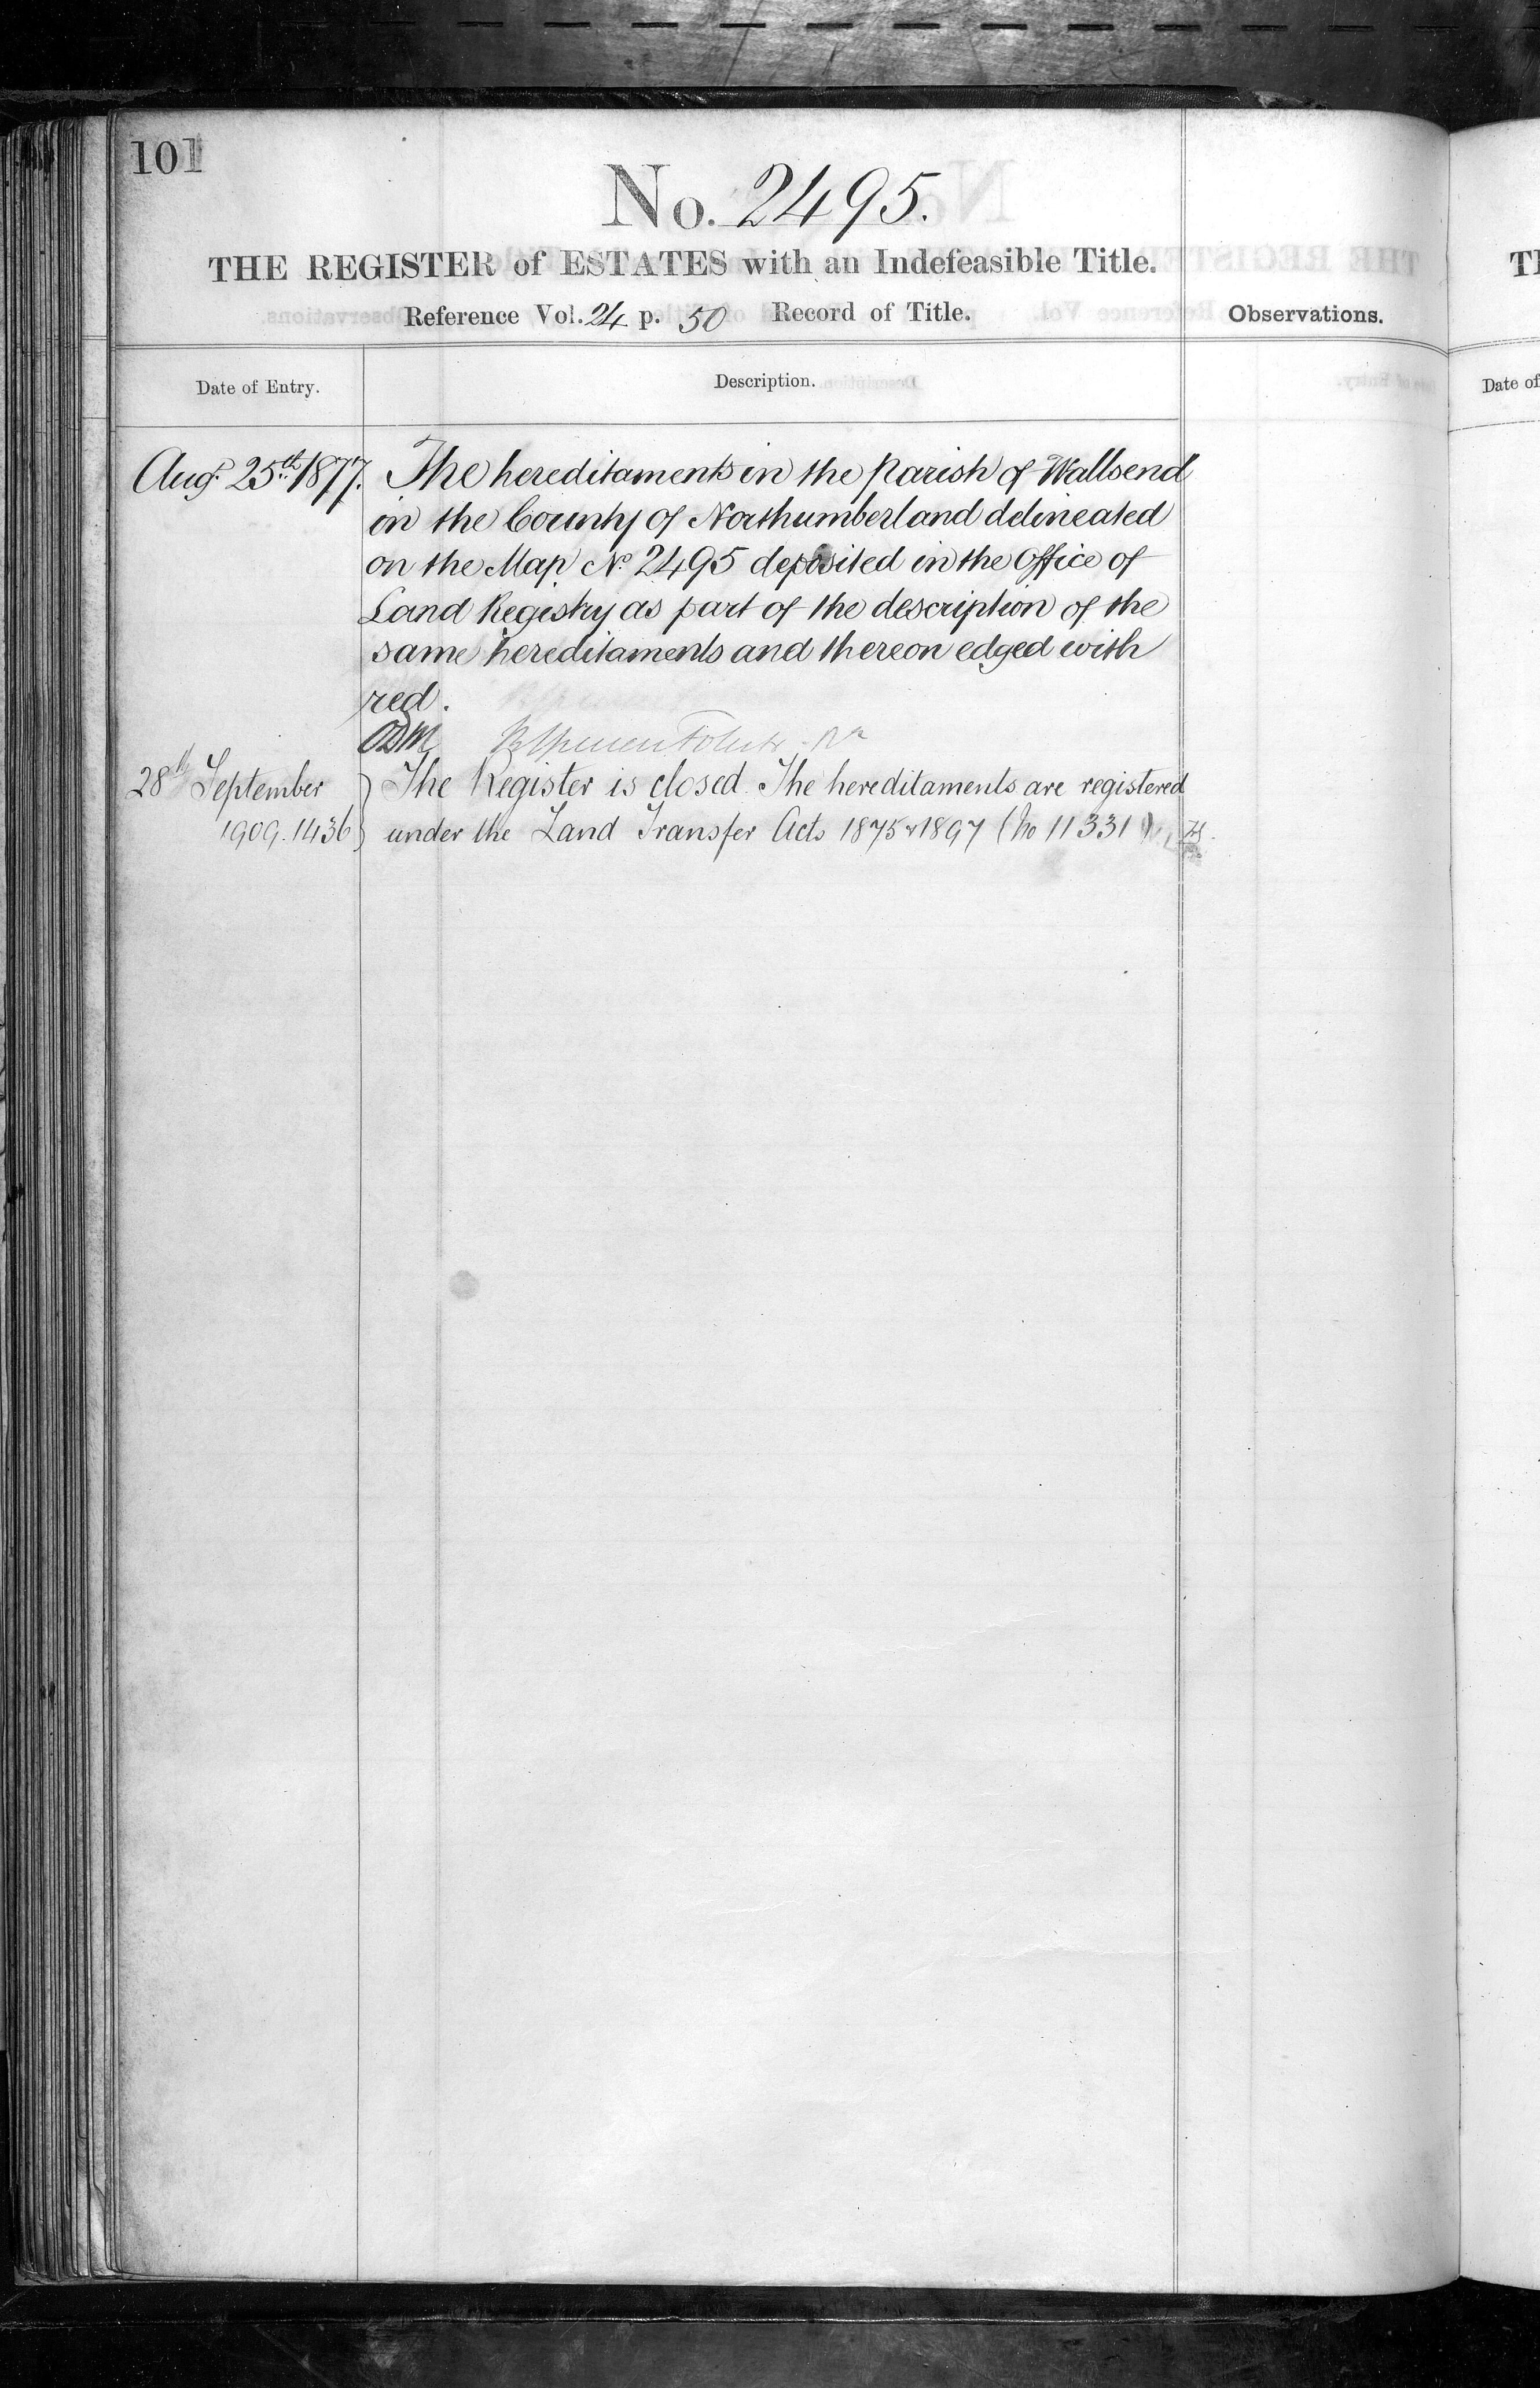 101
No. 2495.
THE REGISTER of ESTATES with an Indefeasible Title.
Reference Vol. 24 p. 50 Record of Title.
Observations.
Date of Entry.
Description.
Augt. 25th. 1877. The hereditaments in the Parish of Wallsend
in the County of Northumberland delineated
on the Map No. 2495 deposited in the Office of
Land Registry as part of the description of the
same hereditaments and thereon edged with
red.
28th September } The Register is closed. The hereditaments are registered
1909. 1436 } under the Land Transfer Acts 1875 & 1897 (No 11331)
Date of